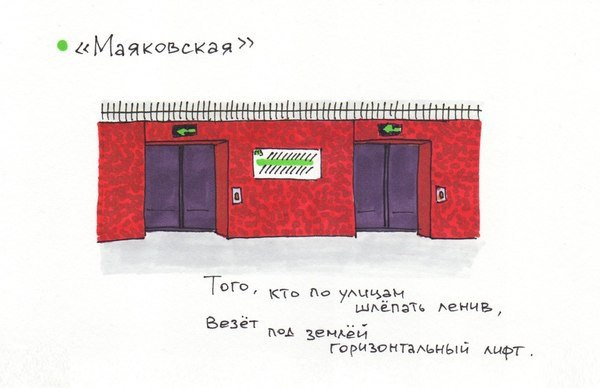 «Маяковская»
Того, кто по улицам
шлёпать ленив,
Везёт под землёй
горизонтальный лифт.